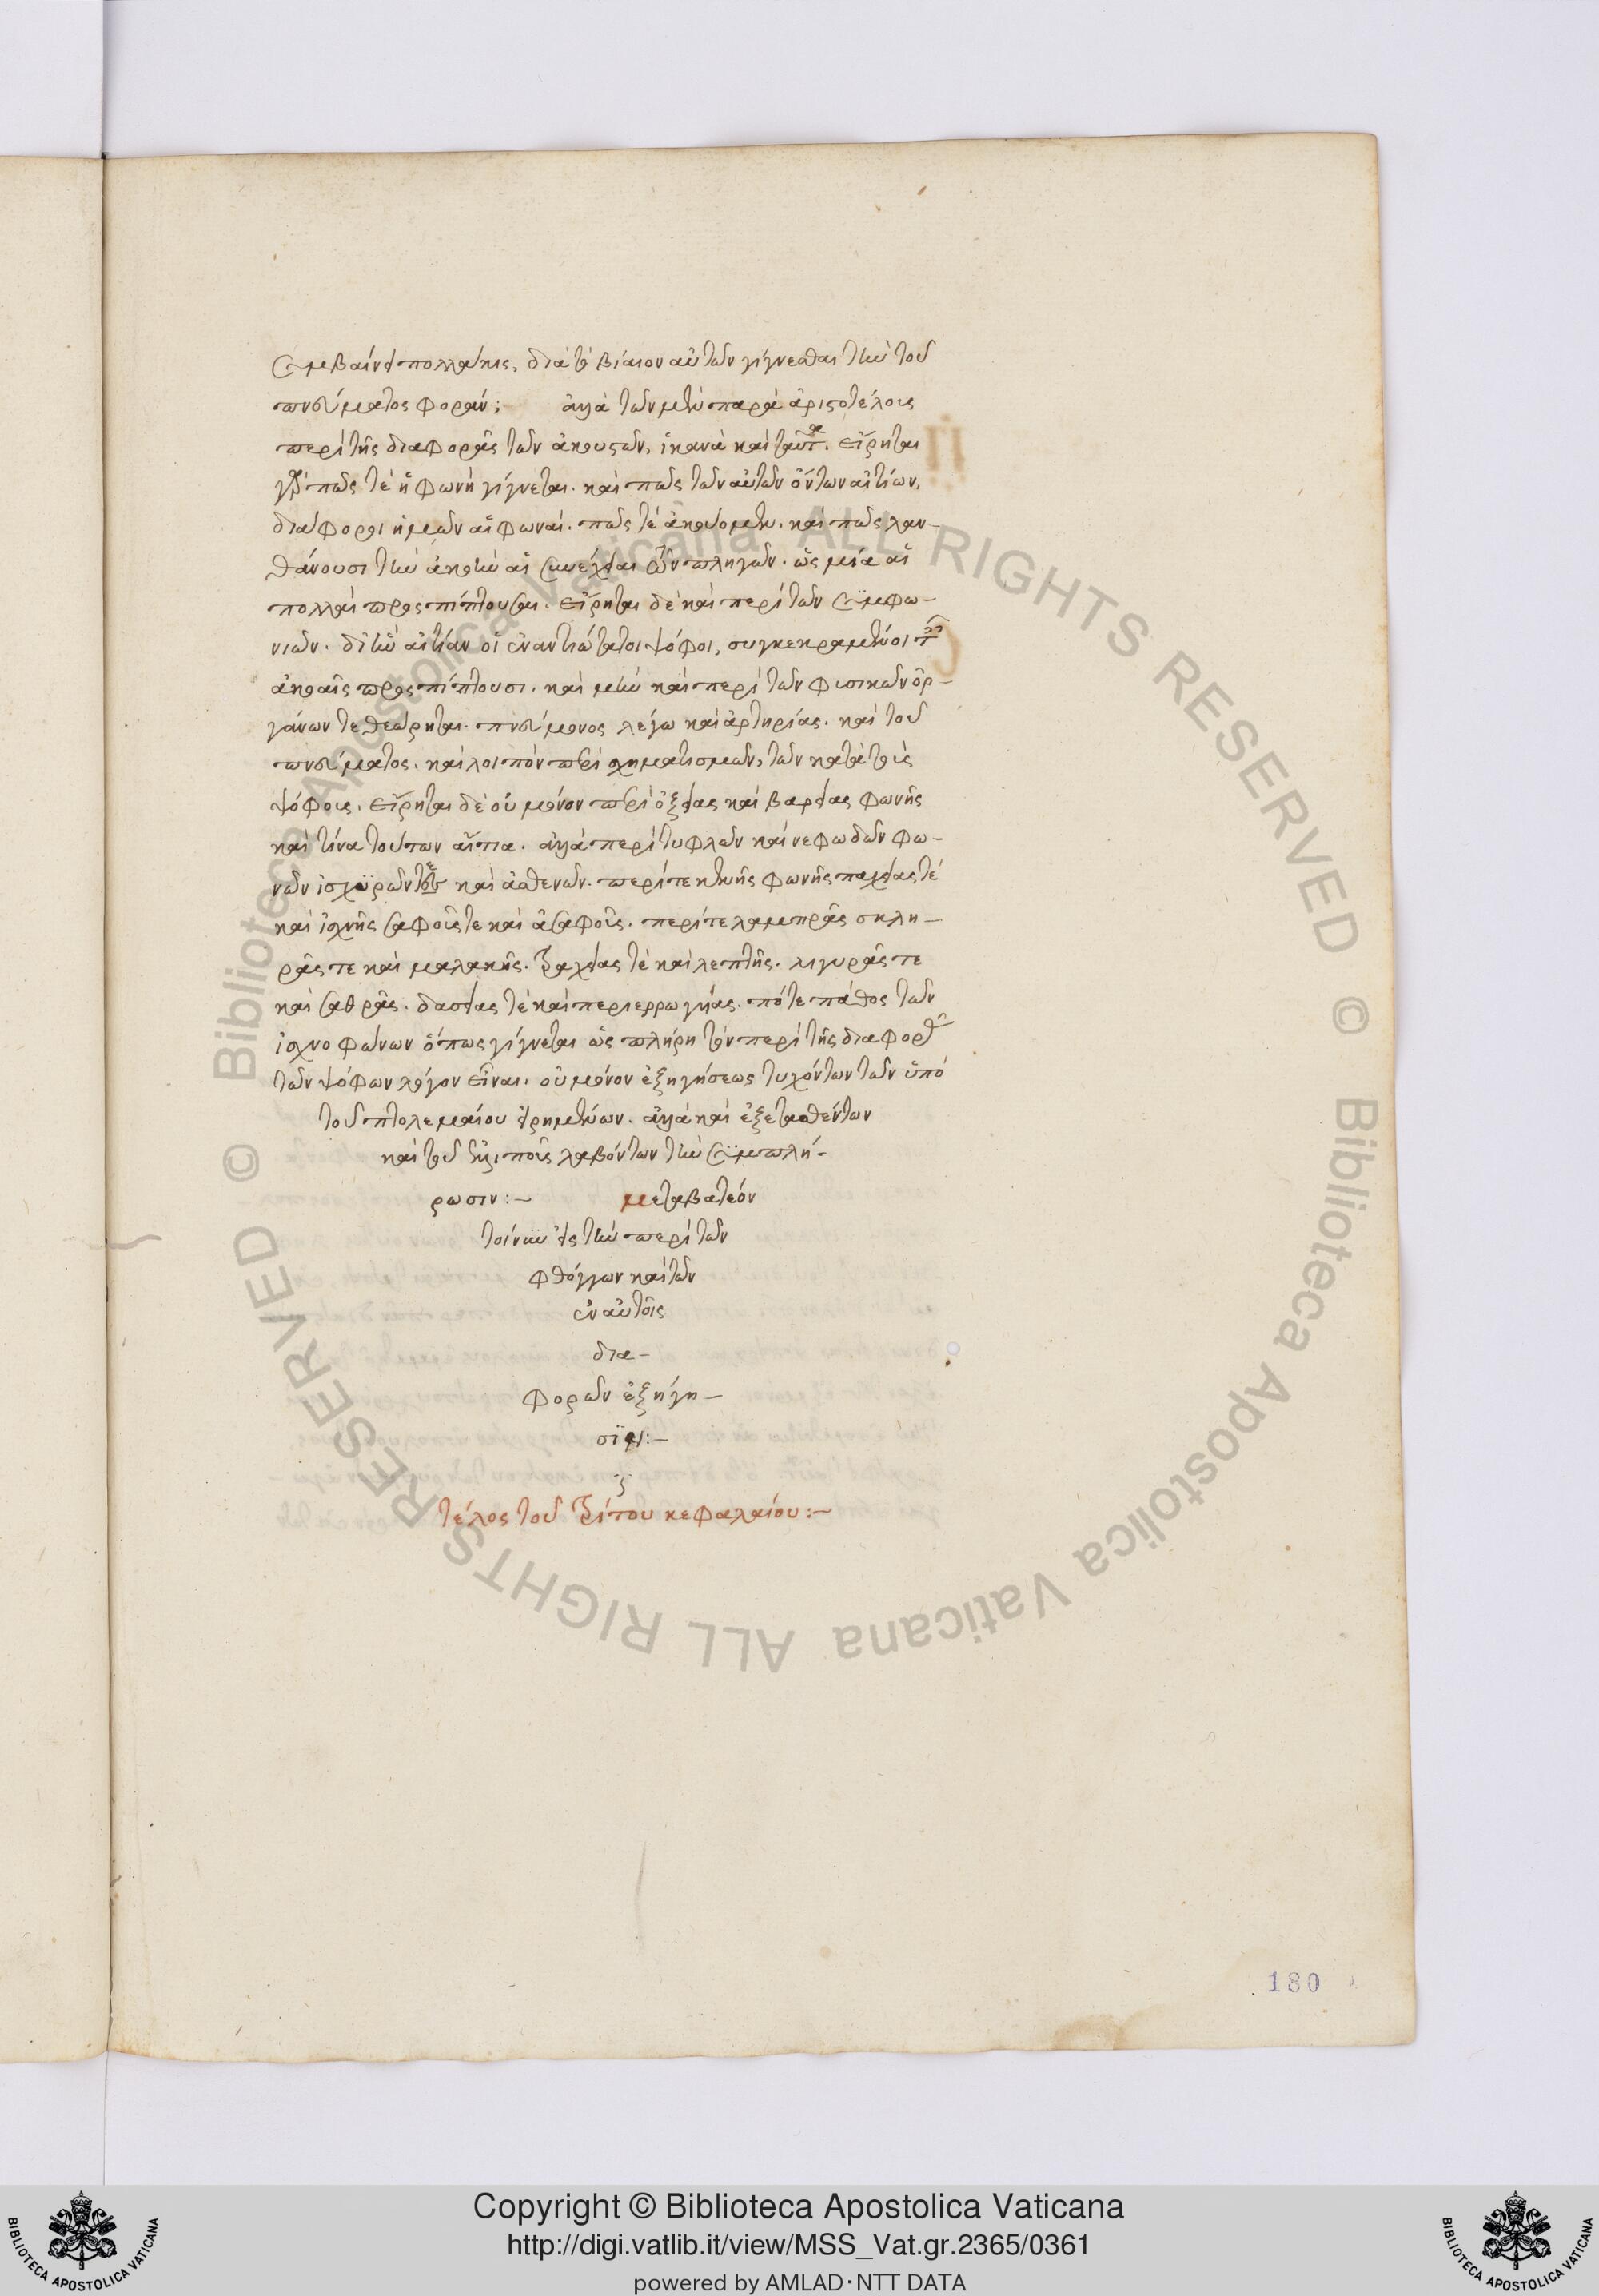 συμβαίνει πολλάκις, διὰ τὸ βίαιον αὐτῶν γίγνεσθαι τὴν τοῦ
πνεύματος φοράν: ἀλλὰ τῶν μὲν παρὰ ἀριστοτέλους
περὶ τῆς διαφορᾶς τῶν ἀκουστῶν, ἱκανὰ καὶ ταῦτα. εἴρηται
γὰρ πῶς τὲ ἡ φωνὴ γίγνεται. καὶ πῶς τῶν αὐτῶν ὄντων αἰτίων,
διάφοροι ἡμῶν αἱ φωναί. πῶς τὲ ἀκούομεν. καὶ πῶς λαν-
θάνουσι τὴν ἀκοὴν αἱ συνέχειαι τῶν πληγῶν. ὡς μία αἱ
πολλαὶ προσπίπτουσαι. εἴρηται δὲ καὶ περὶ τῶν συμφω-
νιῶν. δι ἣν αἰτίαν οἱ ἐναντιώτατοι ψόφοι, συγκεκραμένοι
ἀκοαῖς προσπίπτουσι. καὶ μὴν καὶ περὶ τῶν φυσικῶν ὀρ-
γάνων τεθεώρηται. πνεύμονος λέγω καὶ ἀρτηρίας. καὶ τοῦ
πνεύματος. καὶ λοιπὸν περὶ σχηματισμῶν, τῶν κατὰ τοὺς
ψόφους. εἴρηται δὲ οὐ μόνον περὶ ὀξείας καὶ βαρείας φωνῆς
καὶ τίνα τούτων αἴτια. ἀλλὰ περὶ τυφλῶν καὶ νεφωδῶν φω-
νῶν ἰσχυρῶν καὶ ἀσθενῶν. περί τε κενῆς φωνῆς παχείας τὲ
καὶ ἰσχνῆς σαφοῦς τε καὶ ἀσαφοῦς. περί τε λαμπρᾶς σκλη-
ρᾶς τε καὶ μαλακῆς. τραχείας τὲ καὶ λεπτῆς. λιγυρᾶς τε
καὶ σαθρᾶς. δασείας τὲ καὶ περιερρωγυίας. πότε πάθος τῶν
ἰσχνοφώνων ὅπως γίγνεται ὡς πλήρη τὸν περὶ τῆς διαφορᾶς
τῶν ψόφων λόγον εἶναι. οὐ μόνον ἐξηγήσεως τυχόντων τῶν ὑπὸ
τοῦ πτολεμαίου εἰρημένων. ἀλλὰ καὶ ἐξετασθέντων
καὶ τοῦ ἐλλιποῦς λαβόντων τὴν συμπλή-
ρωσιν:- μεταβατέον
τοίνυν εἰς τὴν περὶ τῶν
φθόγγων καὶ τῶν
ἐν αὐτοῖς
δια-
φορῶν ἐξήγη-
σιν:-
τέλος τοῦ τρίτου κεφαλαίου:-
180
© Biblioteca Apostolica Vaticana ALL RIGHTS RESERVED © Biblioteca Apostolica Vaticana ALL RIGHTS RESERVED
Copyright © Biblioteca Apostolica Vaticana
http://digi.vatlib.it/view/MSS_Vat.gr.2365/0361
powered by AMLAD·NTT DATA
BIBLIOTECA APOSTOLICA VATICANA
BIBLIOTECA APOSTOLICA VATICANA